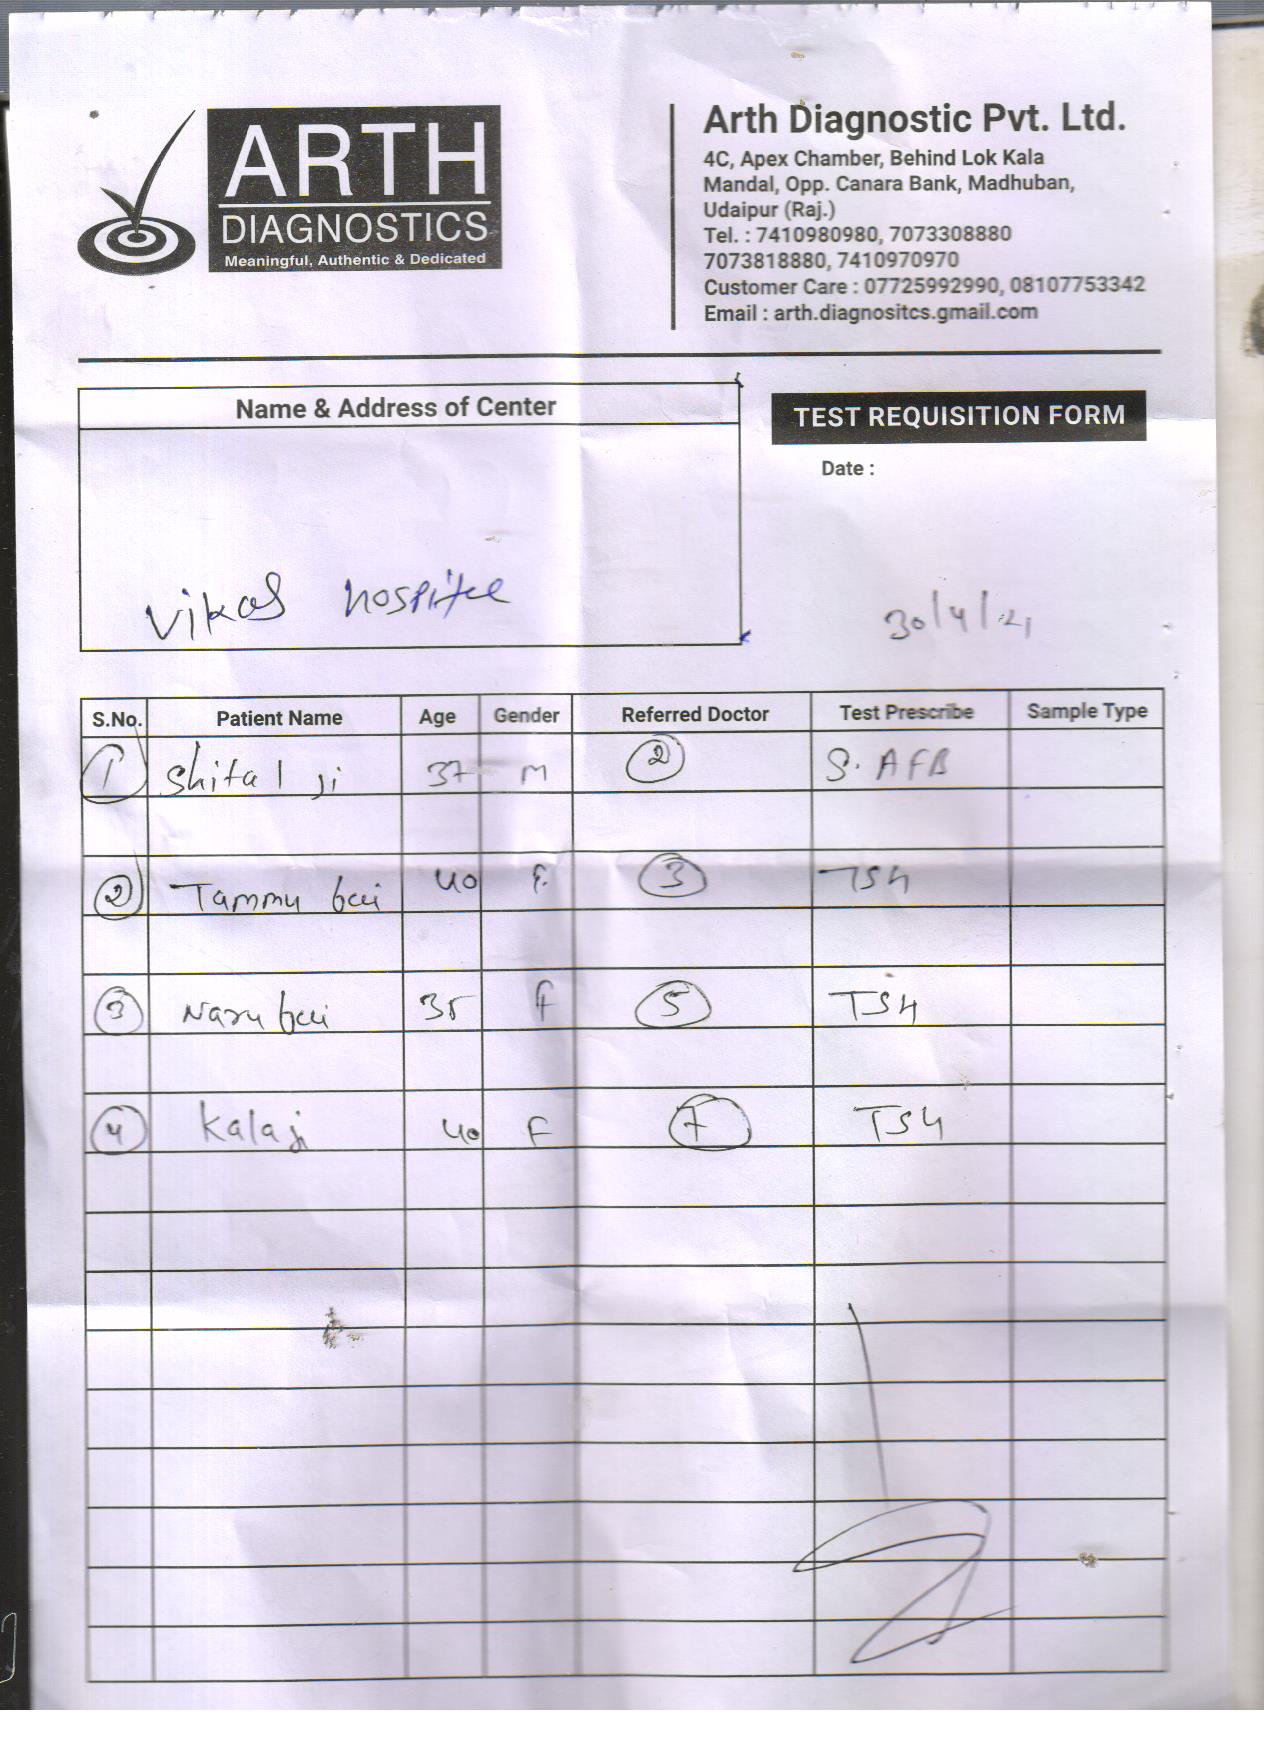 ARTH
DIAGNOSTICS
Meaningful, Authentic & Dedicated
Arth Diagnostic Pvt. Ltd.
4C, Apex Chamber, Behind Lok Kala
Mandal, Opp. Canara Bank, Madhuban,
Udaipur (Raj.)
Tel. : 7410980980, 7073308880
7073818880, 7410970970
Customer Care : 07725992990, 08107753342
Email : arth.diagnositcs.gmail.com
Name & Address of Center
TEST REQUISITION FORM
Date :
Vikas hospitee
30/4/21
S.No. Patient Name Age Gender Referred Doctor Test Prescribe Sample Type
1 Shital ji 37 M 2 S. AFB
2 Tammu bai 40 F. 3 TSH
3 bai 35 F 5 TSH
4 Kalaji 40 F 7 TSH